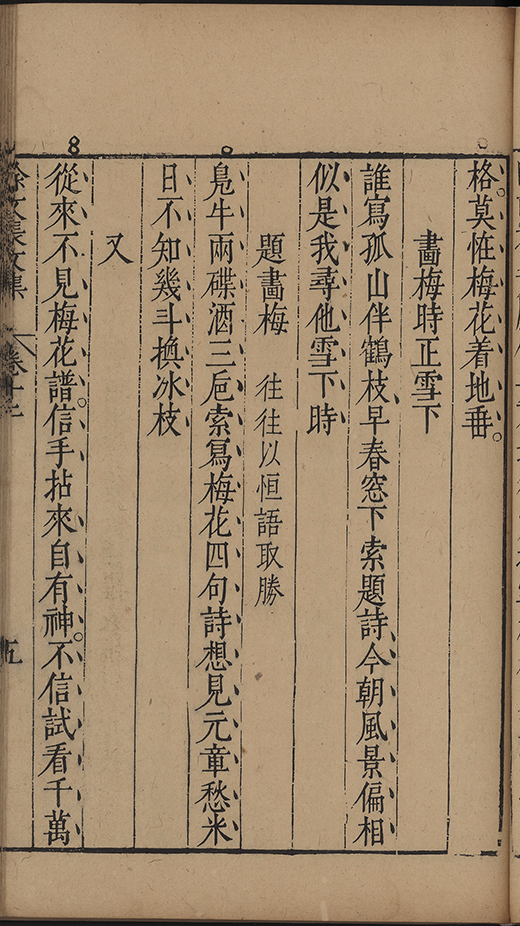 格莫恠梅花着地垂。
畫梅時正雪下
誰寫孤山伴鶴枝、早春窓下索題詩、今朝風景偏相
似是我尋他雪下時
題畫梅 往往以恒語取勝
鳬牛兩碟酒三巵索寫梅花四句詩想見元章愁米
日不知幾斗換冰枝
又
從來不見梅花譜。信手拈來自有神。不信試看千萬
徐文長文集 卷十二 五